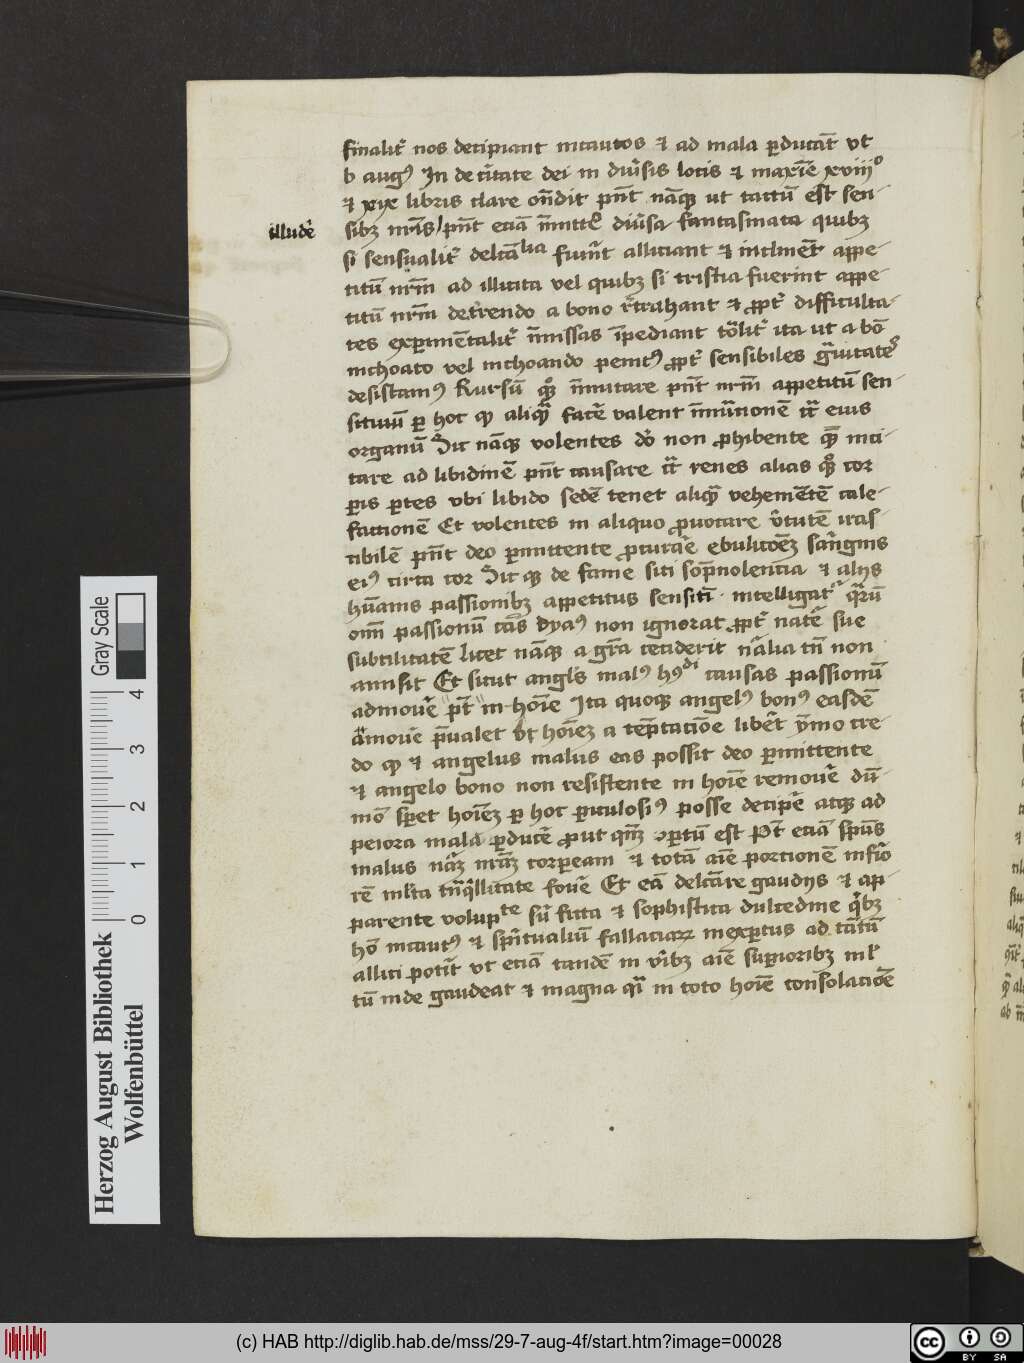 finalit᷑ nos decipiant incautos ⁊ ad mala ꝑducāt vt
b augꝰ In de c̄itate dei in diu᷑sis locis ⁊ maxīe xviijº
⁊ xix libris clare on̄dit pn̄t nāqꝫ ut tactū est sen-
illudē
sibꝫ nr̄is pn̄t eciā īmitte᷑ diu᷑sa fantasmata quibꝫ
si sensualit᷑ delcābilia fuir̄t alliciant ⁊ inclinēt appe
titū nrm̄ ad illicita vel quibꝫ si tristia fuerint appe
titū nrm̄ det᷑rendo a bono ret᷑hant ⁊ ꝓpt᷑ difficulta-
tes exꝑimētalit᷑ īmissas īpediant tōlit᷑ ita ut a bō
inchoato vel inchoando penitꝰ ꝓpt᷑ sensibiles gͣuitates
desistamꝰ Rursū qꝫ īmutare pn̄t nrm̄ appetitū sen-
sitiuū ꝑ hoc ꝙ aliqͣ facē valent īmūtionē cͣ eius
organū Sic nāqꝫ volentes do̅ non ꝓhibente inci
tare ad libidinē pn̄t causare cͣ renes alias qꝫ cor
ꝑis ꝑtes vbi libido sedē tenet aliqͣ vehemētē cale-
factionē Et volentes in aliquo ꝓuocare v᷑tutē iras-
cibilē pn̄t deo ꝑmittente ꝓcurāe ebulicōeꝫ sāguinis
eiꝰ circa cor Sic qꝫ de fame siti sop̄nolencia ⁊ alijs
hūanis passionibꝫ appetitus sensiti᷑ intelligat᷑ qͣrū
oīm passionū cās dyaꝰ non ignorat ꝓpt᷑ natē sue
subtilitatē licet nāqꝫ a gr̄a ceciderit nāͣlia tn̄ non
annisit Et sicut angl̄s malꝰ hꝰmodi causas passionū
admouē pt̄ in hoīe Ita quoqꝫ angelꝰ bonꝰ easdē
amouē p̄ualet vt hoīeꝫ a tēptacōe libet᷑ ymo cre
do ꝙ ⁊ angelus malus eas possit deo ꝑmittente
⁊ angelo bono non resistente in hoīe remouē dū-
mō sꝑet hoīeꝫ ꝑ hoc ꝑiculosiꝰ posse decipē atqꝫ ad
peiora mala ꝑducē ꝓut qn̄ꝫ ꝯꝑtū est Pt̄ eciā sp̄us
malus nāꝫ nrāꝫ corꝑeam ⁊ totā aīe porcionē infio᷑
rē ml̄ta tn̄qͣllitate fouē Et eā delcāre gaudijs ⁊ ap-
parente voluptate sn̄ ficta ⁊ sophistica dulcedine qͥbꝫ
hō incautꝰ ⁊ sp̄ritualiū fallaciaꝝ inexꝑtus ad tātū
allici potir̄t vt eciā tandē in vi᷑bꝫ aīe suꝑioribꝫ ml᷑
tū inde gaudeat ⁊ magna qͣ in toto hoīe consolacōē
Herzog August Bibliothek
Wolfenbüttel
Gray Scale
0 1 2 3 4
(c) HAB http://diglib.hab.de/mss/29-7-aug-4f/start.htm?image=00028
cc BY SA